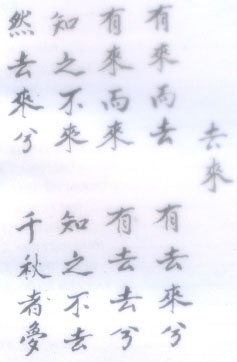 去來
有來而去 有去來兮
有來而來 有去去兮
知之不來 知之不去
然去來兮 千秋者夢